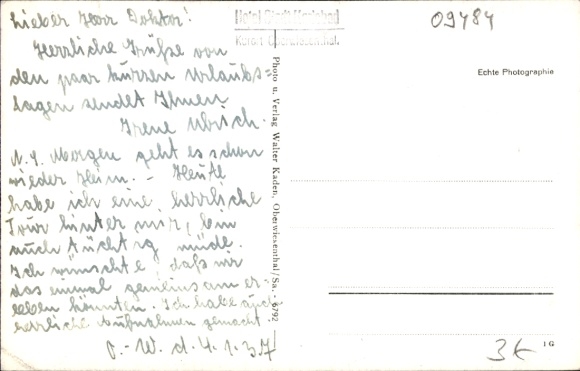 Lieber Herr Doktor!
Herrliche Grüße von
den paar kurzen Urlaubs-
tagen sendet Ihnen
Irene
N.S. Morgen geht es schon
wieder heim. - Heute
habe ich eine herrliche
Tour hinter mir, bin
auch tüchtig müde.
Ich wünschte, daß wir
das einmal gemeinsam er-
leben könnten. Ich habe auch
herrliche Aufnahmen gemacht.
O.-W. d. 4.1.37
Hotel Stadt Karlsbad
Kurort Oberwiesenthal.
09484
Echte Photographie
Photo u. Verlag Walter Kaden, Oberwiesenthal/Sa. - 6792
3€
1 G